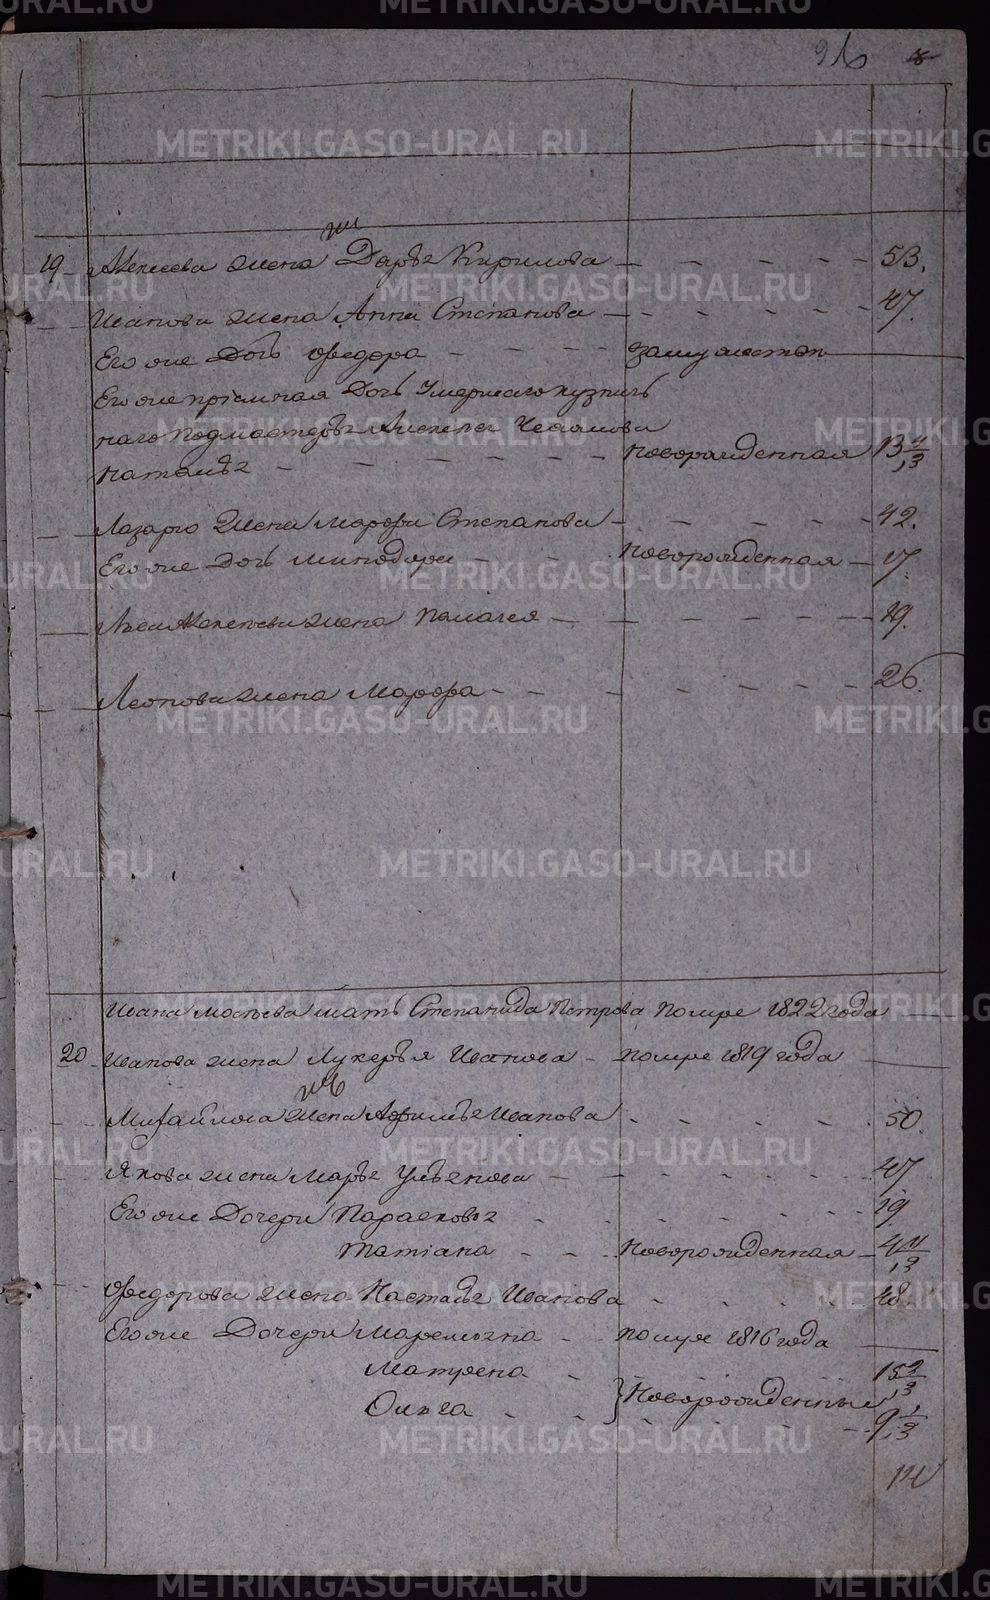 96
19 Алексеева жена Дарья Кирилова 53.
Иванова жена Анна Степанова 47.
Его же дочь Федора замужеством
Его же приемная дочь умершаго кузнич
наго подмастерья Алексея
Наталья новорожденная 13 4/13
Лазарю жена Марфа Степанова 42.
Его же дочь Минодора новорожденная 17.
жена Палагея 19.
Леонова жена Марфа 26.
Ивана мать Степанида Петрова помре 1822 года
20 Иванова жена Лукерья Иванова помре 1819 года
Михайлова жена Афимья Иванова 50.
Якова жена Марья Ульянова 47
Его же дочери Парасковья 19.
Татиана новорожденная 4 11/13
Федорова жена Настасья Иванова 48.
Его же дочери Маремьяна помре 1816 года
Матрена 15 2/13
Ольга } новорожденные
9 1/13
METRIKI.GASO-URAL.RU